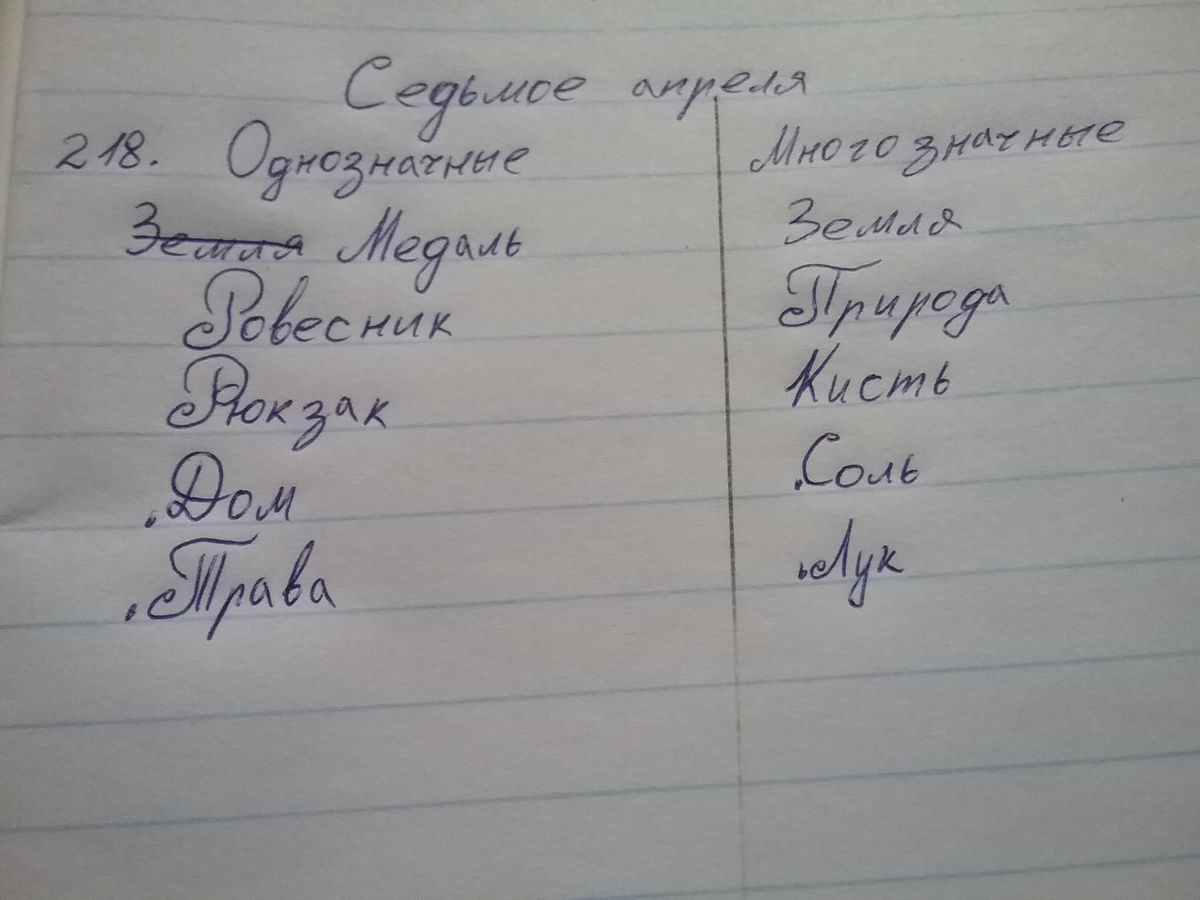 Седьмое апреля
218. Однозначные Многозначные
Земля Медаль Земля
Ровесник Природа
Рюкзак Кисть
.Дом .Соль
.Трава .Лук